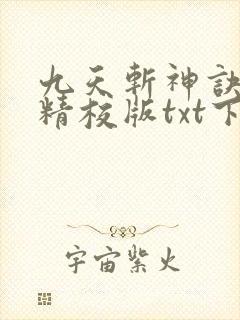 九天斬神訣
精校版txt下
宇宙紫火